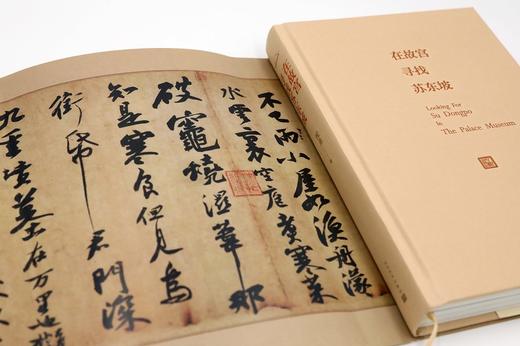 在故宫
寻找
苏东坡
Looking For
Su Dongpo
In
The Palace Museum
不已雨小屋如漁舟濛
水雲裏空庖煮寒菜
破竈燒濕葦那
知是寒食但見烏
銜帋君門深
九重墳墓在万里也擬